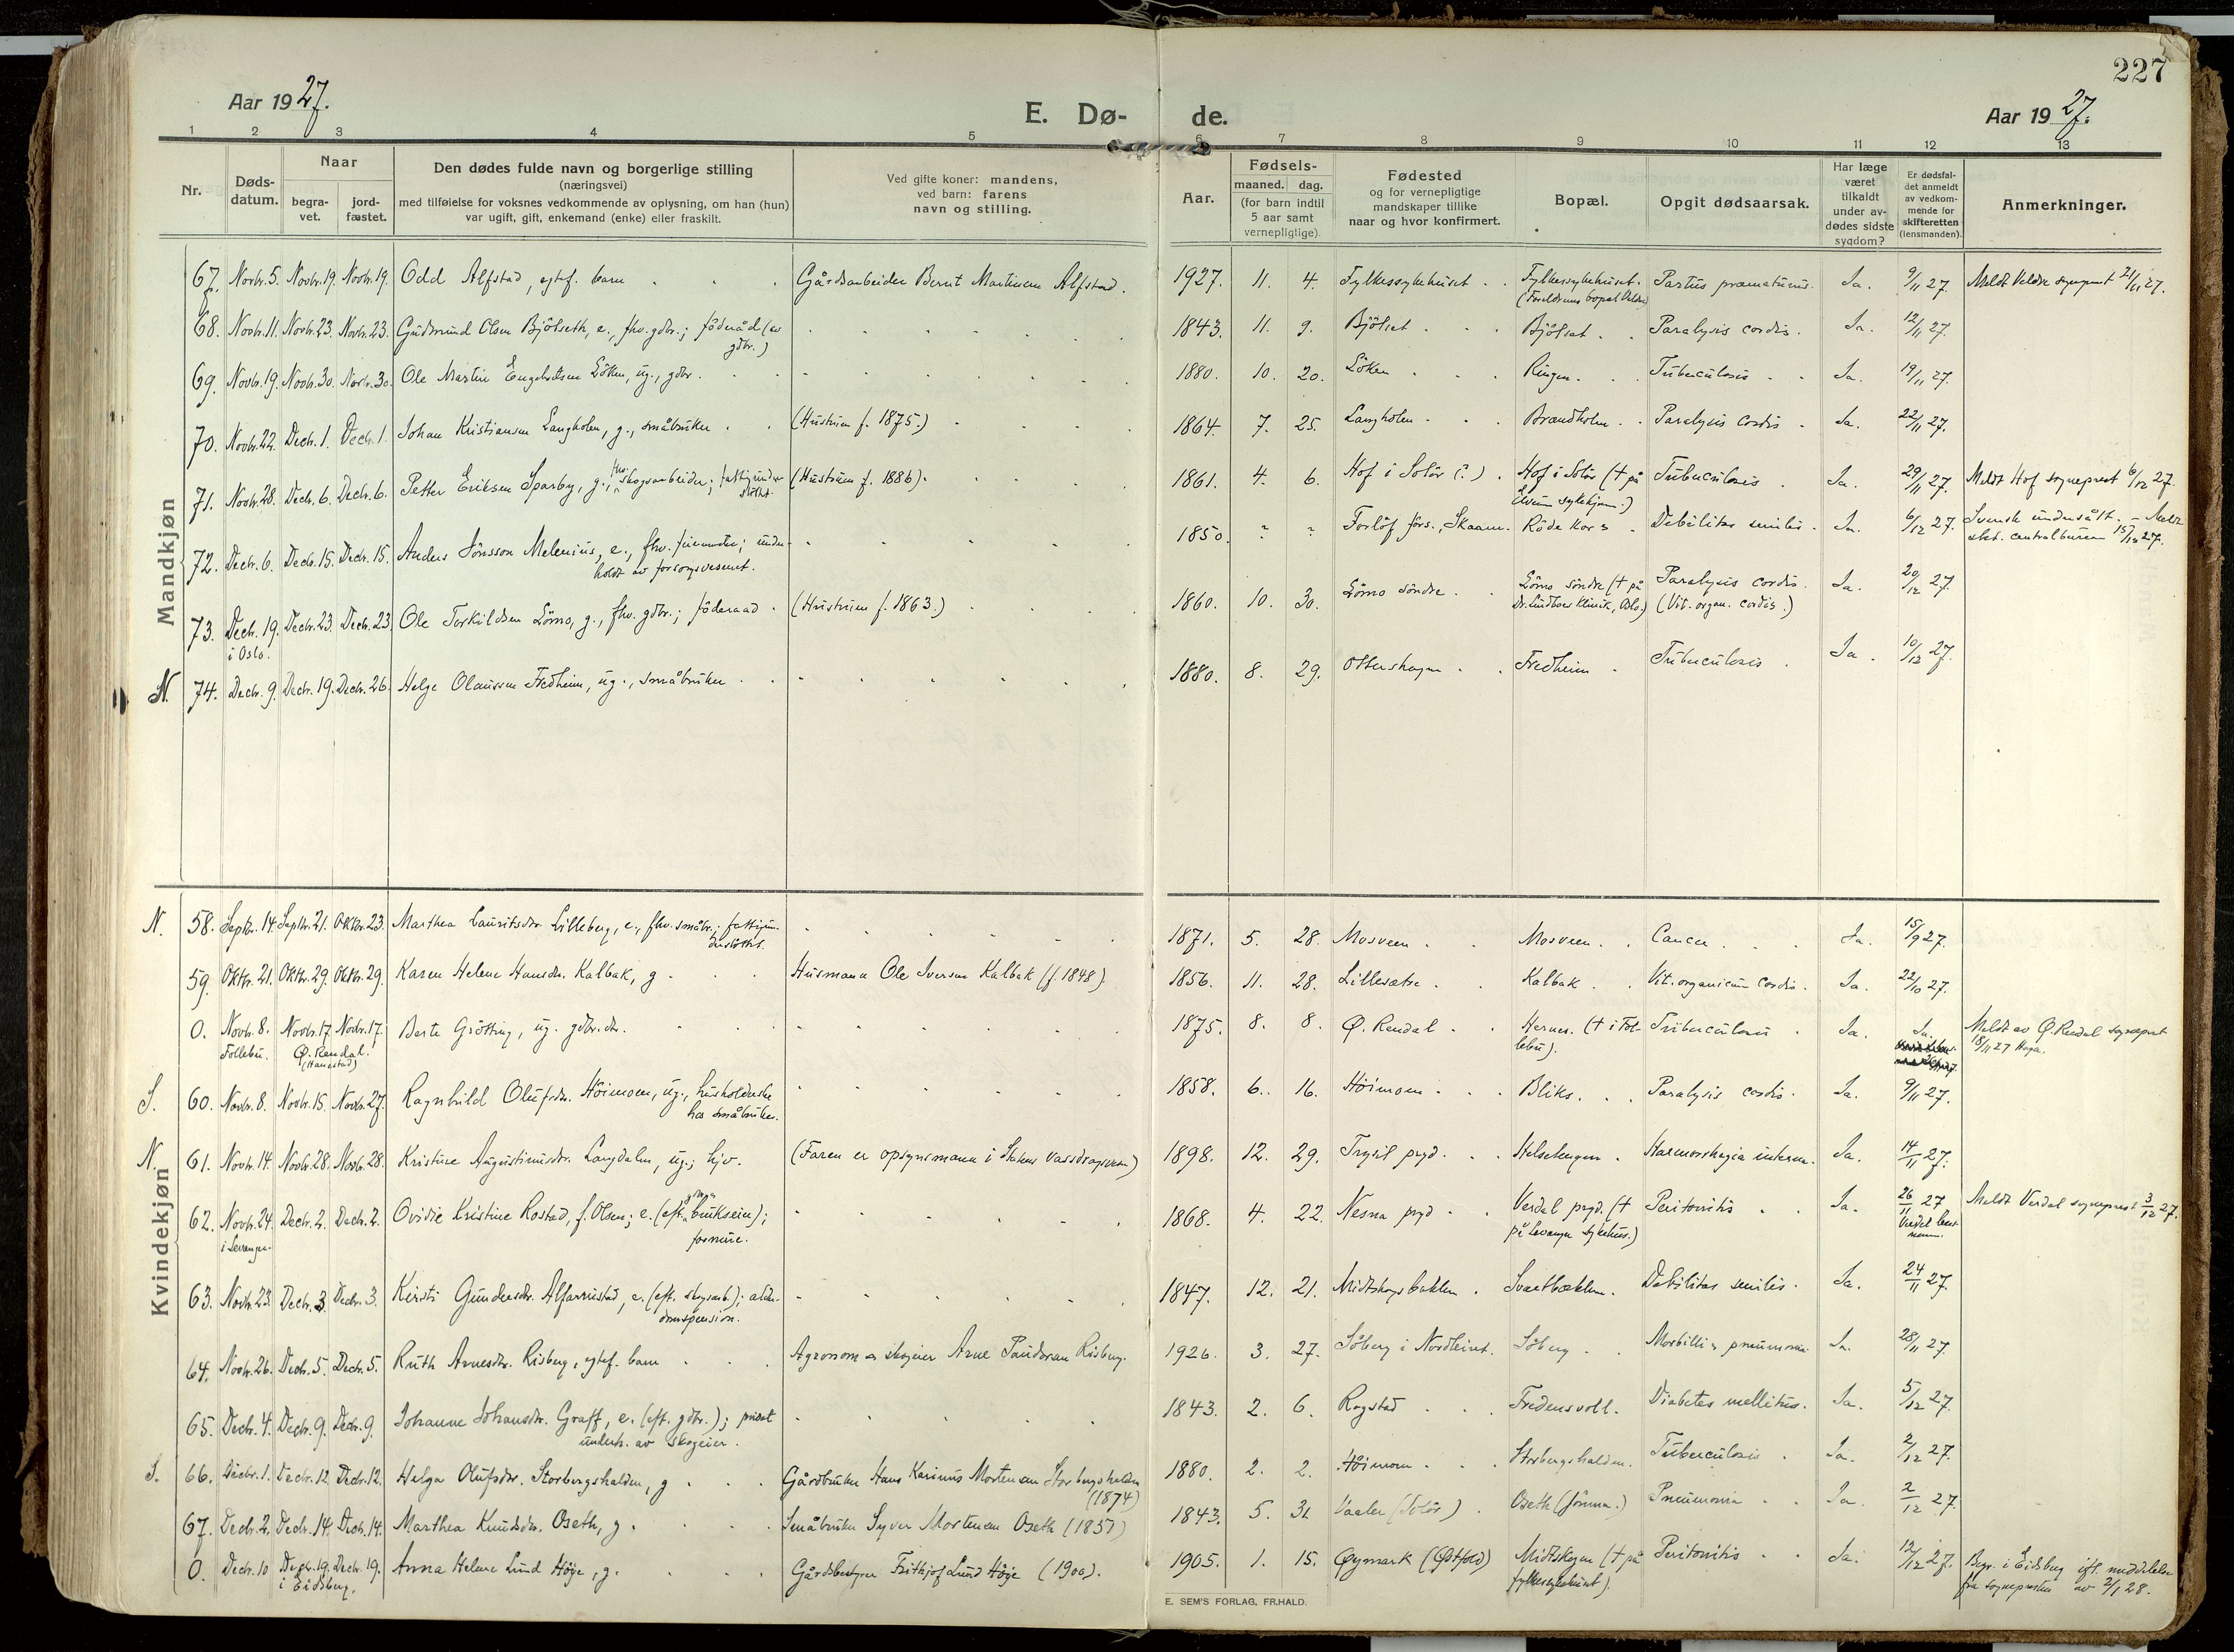 227
Aar 1927.
E. Dø-
de.
Aar 1927.
1 2 3 4 5 6 7 8 9 10 11 12 13
Nr.
Døds-
datum.
Naar
begra-
vet.
jord-
fæstet.
Den dødes fulde navn og borgerlige stilling
(næringsvei)
med tilføielse for voksnes vedkommende av oplysning, om han (hun)
var ugift, gift, enkemand (enke) eller fraskilt.
Ved gifte koner: mandens,
ved barn: farens
navn og stilling.
Aar.
Fødsels-
maaned. dag.
(for barn indtil
5 aar samt
vernepligtige).
Fødested
og for vernepligtige
mandskaper tillike
naar og hvor konfirmert.
Bopæl.
Opgit dødsaarsak.
Har læge
været
tilkaldt
under av-
dødes sidste
sygdom?
Er dødsfal-
det anmeldt
av vedkom-
mende for
skifteretten
(lensmanden).
Anmerkninger.
Mandkjøn
67. Novbr. 5. Novbr. 19. Novbr. 19. Odd Alfstad, egtef. barn Gårdsarbeider Bernt Martinsen Alfstad. 1927. 11. 4. Fylkessykehuset Fylkessykehuset. Partus præmaturus. Ja. 9/11 27. Meldt Veldre sogneprest 21/11 27.
(Foreldrenes bopæl Veldre)
68. Novbr. 11. Novbr. 23. Novbr. 23. Gudmund Olsen Bjölseth, e., fhv. gdbr.; föderåd (av 1843. 11. 9. Bjölset Bjölset Paralysis cordis. Ja. 12/11 27.
gdbr.)
69. Novbr. 19. Novbr. 30. Novbr. 30. Ole Martin Engebretsen Löken, ug., gdbr. 1880. 10. 20. Löken Ringen. Tuberculosis Ja. 19/11 27.
70. Novbr. 22. Decbr. 1. Decbr. 1. Johan Kristiansen Langholen, g., småbruker (Hustruen f. 1875.) 1864. 7. 25. Langholen Brændholen Paralysis cordis Ja. 22/11 27.
71. Novbr. 28. Decbr. 6. Decbr. 6. Petter Eriksen Sparby, g., fhv. skogsarbeider; fattigunder- (Hustruen f. 1886). 1861. 4. 6. Hof i Solör (?) Hof i Solör († på Tuberculosis Ja. 29/11 27. Meldt Hof sogneprest 6/12 27.
støttet. Elverum sykehjem.)
72. Decbr. 6. Decbr. 15. Decbr. 15. Anders Jönsson Melenius, e., fhv. ; under- 1850. ? ? Forlöf förs., Skaane. Röde Kors Debilitas senilis. Ja. 6/12 27. Svensk undersått. – Meldt
holdt av forsorgsvesenet. stat. centralbureau 15/12 27.
73. Decbr. 19. Decbr. 23. Decbr. 23. Ole Torkildsen Lömo, g., fhv. gdbr.; föderaad (Hustruen f. 1863.) 1860. 10. 30. Lömo söndre Lömo söndre († på Paralysis cordis. Ja. 20/12 27.
i Oslo. Dr. Lindboes Klinik, Oslo.) (Vit. organ. cordis.)
N. 74. Decbr. 9. Decbr. 19. Decbr. 26. Helge Olaussen Fredheim, ug., småbruker 1880. 8. 29. Ottershagen Fredheim Tuberculosis Ja. 10/12 27.
Kvindekjøn
N. 58. Septbr. 14. Septbr. 21. Oktbr. 23. Marthea Lauritsdr. Lilleberg, e., fhv. småbr.; fattigun- 1871. 5. 28. Mosveen Mosveen Cancer Ja. 15/9 27.
derstöttet.
59. Oktbr. 21. Oktbr. 29. Oktbr. 29. Karen Helene Hansdr. Kalbak, g Husmann Ole Iversen Kalbak (f. 1848). 1856. 11. 28. Lillesætre Kalbak Vit. organicum cordis. Ja. 22/10 27.
0. Novbr. 8. Novbr. 17. Novbr. 17. Berte Grötting, ug. gdbr.dr. 1875. 8. 8. Ø. Rendal Hernes. († i Fol- Tuberculosis Ja. Ja. Meldt av Ø. Rendal sogneprest
Follebu. Ø. Rendal. lebu). 18/11 27 Haga.
(Hanestad)
S. 60. Novbr. 8. Novbr. 15. Novbr. 27. Ragnhild Olufsdr. Höimoen, ug., husholderske 1858. 6. 16. Höimoen Bliks. Paralysis cordis. Ja. 9/11 27.
hos småbruker.
N. 61. Novbr. 14. Novbr. 28. Novbr. 28. Kristine Augustinusdr. Langdalen, ug.; hjv. (Faren er opsynsmann i Statens Vassdragsvesen) 1898. 12. 29. Trysil prgd. Helselungen Hæmorrhagia interna. Ja. 14/11 27.
62. Novbr. 24. Decbr. 2. Decbr. 2. Ovidie Kristine Rostad, f. Olsen; e. (eft. brukseier); 1868. 4. 22. Nesna prgd Verdal prgd. († Peritonitis Ja. 26/11 27 Meldt Verdal sogneprest 3/12 27.
i Levanger. formue. på Levanger sykehus.) Verdal
63. Novbr. 23. Decbr. 3. Decbr. 3. Kirsti Gundersdr. Alfarrustad, e. (eft. skogsarb.); alder- 1847. 12. 21. Midtskogbakken Svartbækken. Debilitas senilis. Ja. 24/11 27.
domspension.
64. Novbr. 26. Decbr. 5. Decbr. 5. Ruth Arnesdr. Risberg, egtef. barn Agronom og skogeier Arne Risberg. 1926. 3. 27. Söberg i Nordleiret. Söberg Morbilli & pneumonia Ja. 28/11 27.
65. Decbr. 4. Decbr. 9. Decbr. 9. Johanne Johansdr. Graff, e. (eft. gdbr.); privat 1843. 2. 6. Rogstad Fredensvoll. Diabetes mellitus. Ja. 5/12 27.
underh. av skogeier.
S. 66. Decbr. 1. Decbr. 12. Decbr. 12. Helga Olufsdr. Storbergshalden, g Gårdbruker Hans Karinus Mortensen Storbergshalden 1880. 2. 2. Höimoen Storbergshalden. Tuberculosis Ja. 2/12 27.
(1874)
67. Decbr. 2. Decbr. 14. Decbr. 14. Marthea Knudsdr. Oseth, g. Småbruker Syver Mortensen Oseth (1851) 1843. 5. 31. Vaaler (Solör) Oseth (Jömna.) Pneumonia Ja. 2/12 27.
0. Decbr. 10 Decbr. 19. Decbr. 19. Anna Helene Lund Höje, g. Gårdsbestyrer Frithjof Lund Höje (1900). 1905. 1. 15. Øymark (Østfold) Midtskogen († på Peritonitis Ja. 12/12 27. Begr. i Eidsberg ifl. meddelelse
i Eidsberg. fylkessykehuset). fra sognepresten av 2/1 28.
E. SEM'S FORLAG, FR.HALD.